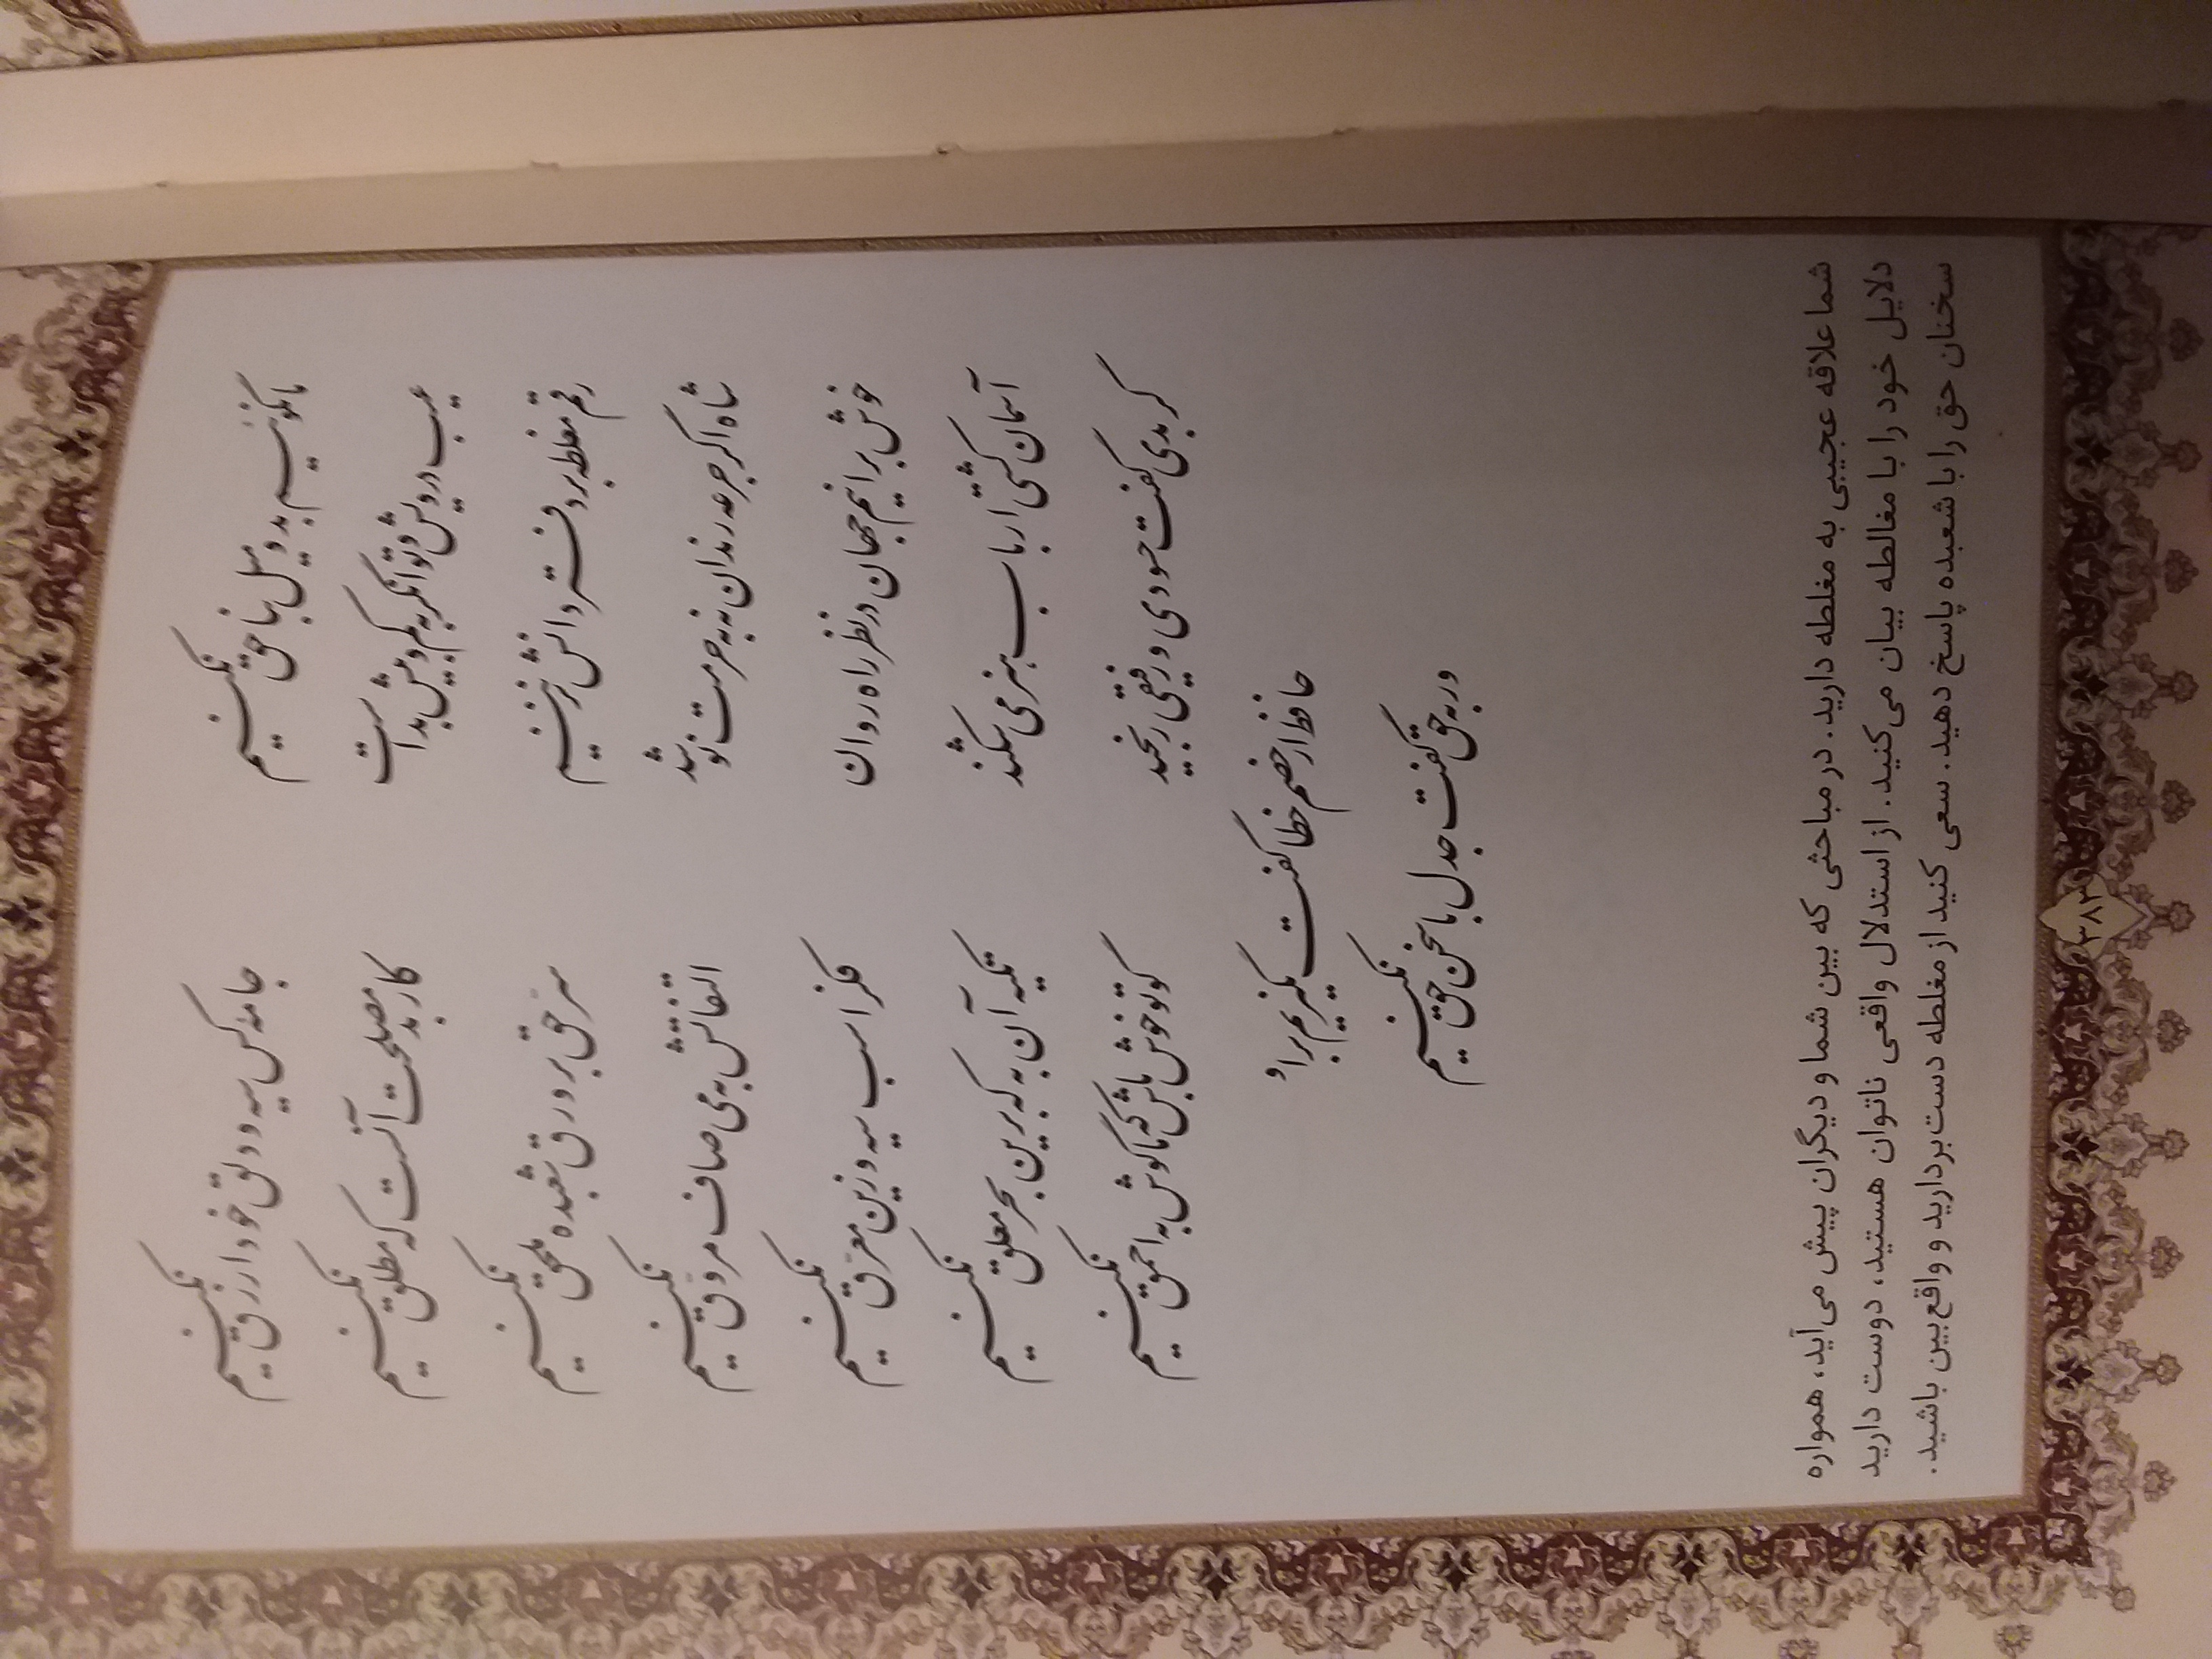 ما نگوئیم بد و میل بنا حق نکنیم
جامه کس سیه و دلق خود ازرق نکنیم
عیب درویش و توانگر به کم و بیش بد است
کار بد مصلحت آنست که مطلق نکنیم
رقم مغلطه بر دفتر دانش نزنیم
سرّ حق بر ورق شعبده ملحق نکنیم
شاه اگر جرعه رندان نه به حرمت نوشد
التفاتش به می صاف مروّق نکنیم
خوش برانیم جهان در نظر راه روان
فکر اسب سیه و زین مغرّق نکنیم
آسمان کشتی ارباب هنر می شکند
تکیه آن به که برین بحر معلّق نکنیم
گر بدی گفت حسودی و رفیقی رنجید
گو تو خوش باش که ما گوش به احمق نکنیم
حافظ ار خصم خطا گفت نگیریم بر او
ور به حق گفت جدل با سخن حق نکنیم
شما علاقه عجیبی به مغلطه دارید. در مباحثی که بین شما و دیگران پیش می‌آید، همواره
دلایل خود را با مغالطه بیان می‌کنید. از استدلال واقعی ناتوان هستید، دوست دارید
سخنان حق را با شعبده پاسخ دهید. سعی کنید از مغلطه دست بردارید و واقع‌بین باشید.
۳۸۳